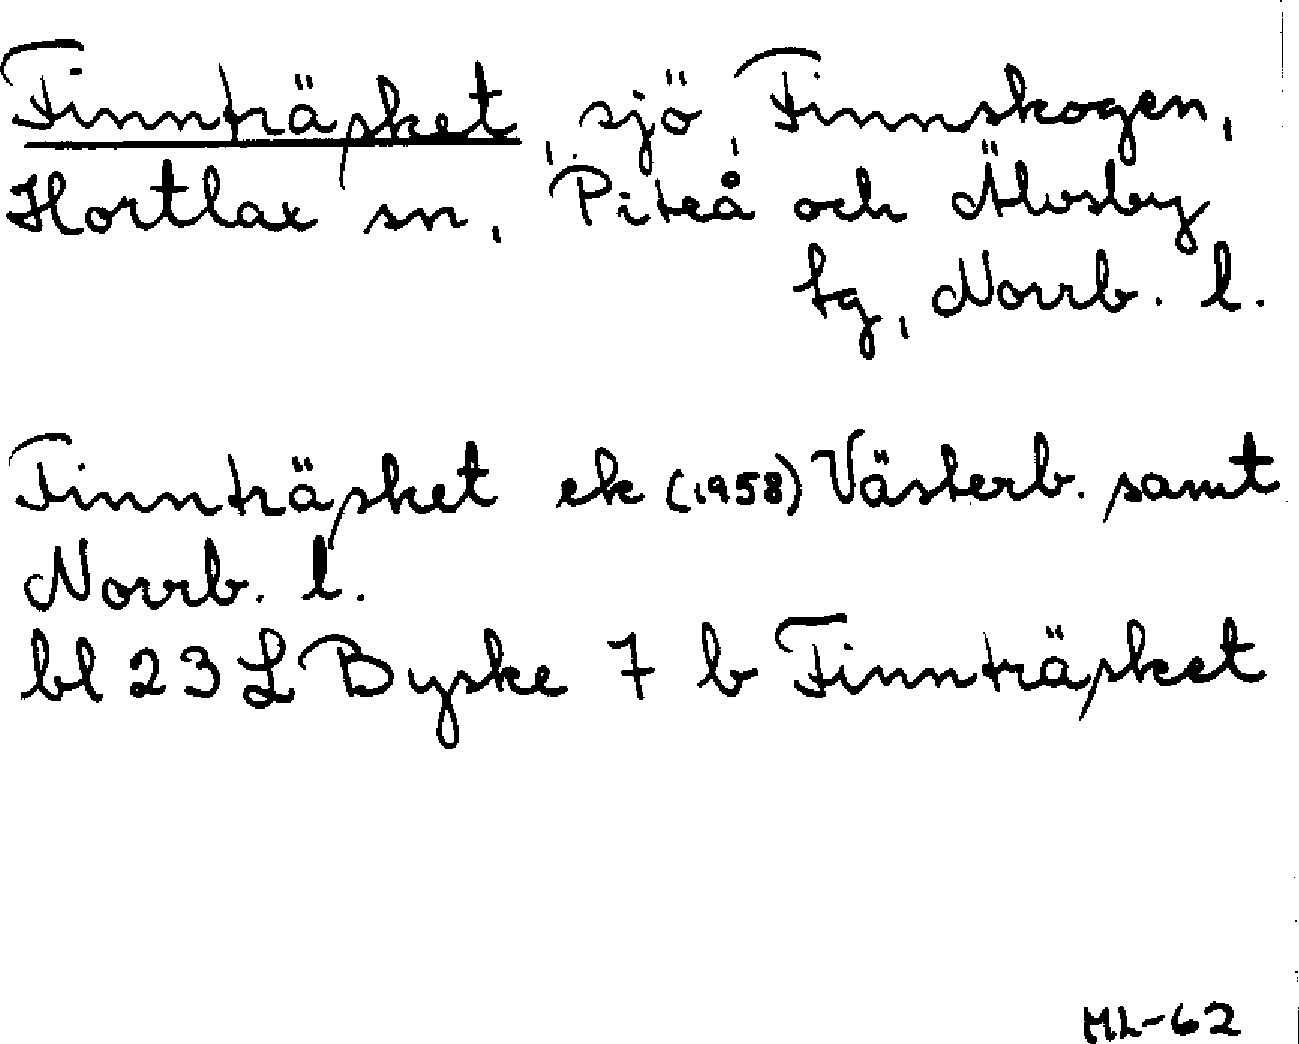 Finnträsket, sjö, Finnskogen,
Hortlax sn, Piteå och Älvsby
tg, Norrb. l.
Finnträsket ek (1958) Västerb. samt
Norrb. l.
bl 23 L Byske 7 b Finnträsket
ML-62